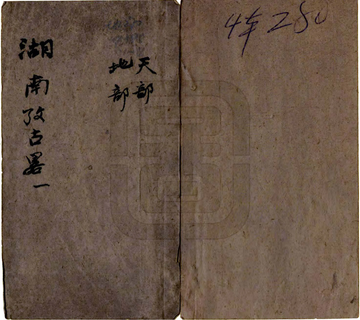 湖南攷古畧一
天部
地部
4本280